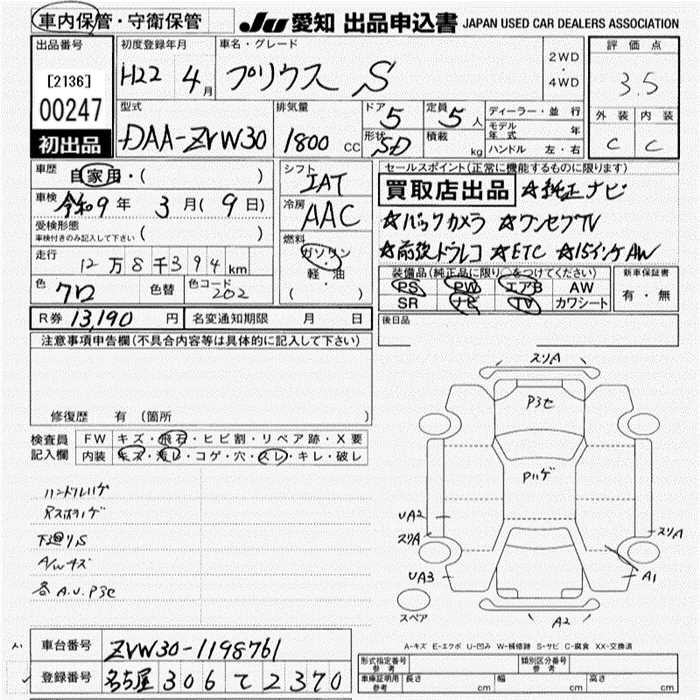 車内保管・守衛保管 JU 愛知 出品申込書 JAPAN USED CAR DEALERS ASSOCIATION
出品番号 初度登録年月 車名・グレード 2WD・4WD 評価点
[2136] 00247 H22 4月 プリウス S 3.5
初出品
型式 排気量 ドア 5 定員 5人 ディーラー・並行 外装 内装
DAA-ZVW30 1800 CC 形状 SD 積載 kg モデル年式 年 C C
ハンドル 左・右
車歴 自家用・( ) シフト IAT セールスポイント(正常に機能するものに限ります)
車検 令和9年 3月(9日) 冷房 AAC 買取店出品 ☆純正ナビ
受検形態 車検付きのみ記入して下さい ( ) 燃料 ガソリン・軽・油 ( ) ☆バックカメラ ☆ワンセグTV
走行 12万8千394km ☆前後ドラレコ ☆ETC ☆15インチAW
色 クロ 色替 色コード 202 装備品(純正品に限り○をつけてください) 新車保証書
PS PW エアB AW 有・無
SR ナビ TV カワシート
R券 13,190円 名変通知期限 月 日 後日品
注意事項申告欄(不具合内容等は具体的に記入して下さい)
修復歴 有(箇所 )
検査員記入欄 FW キズ・飛石・ヒビ割・リペア跡・X要
内装 キズ・汚レ・コゲ・穴・スレ・キレ・破レ
ハンドルハゲ
下廻リS
A/Wキズ
各A.U.P3セ
スリA
P3セ
Pハゲ
UA2
スリA
スリA
UA3
A1
A2
スペア
A-キズ E-エクボ U-凹み W-補修跡 S-サビ C-腐食 XX-交換済
車台番号 ZVW30-1198761
登録番号 名古屋 306 て 2370
形式指定番号 参考 類別区分番号 参考
車庫証明用 参考 長さ cm 幅 cm 高さ cm